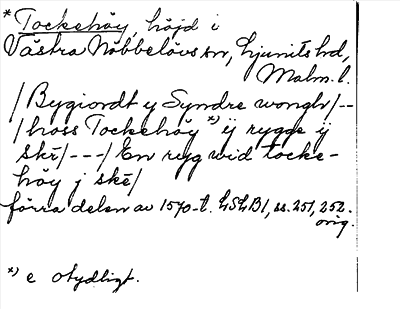 *Tockehöy, höjd i
Västra Nöbbelövs sn, Ljunits hd,
Malm. l.
/Bygiordt y Syndre wongh/--
/hoss Tockehöy *) ij rygge ij
skē/---/En ryg wid tocke-
höy j skē/
förra delen av 1570-t. LSLB1, ss. 251, 252.
orig.
*) e otydligt.